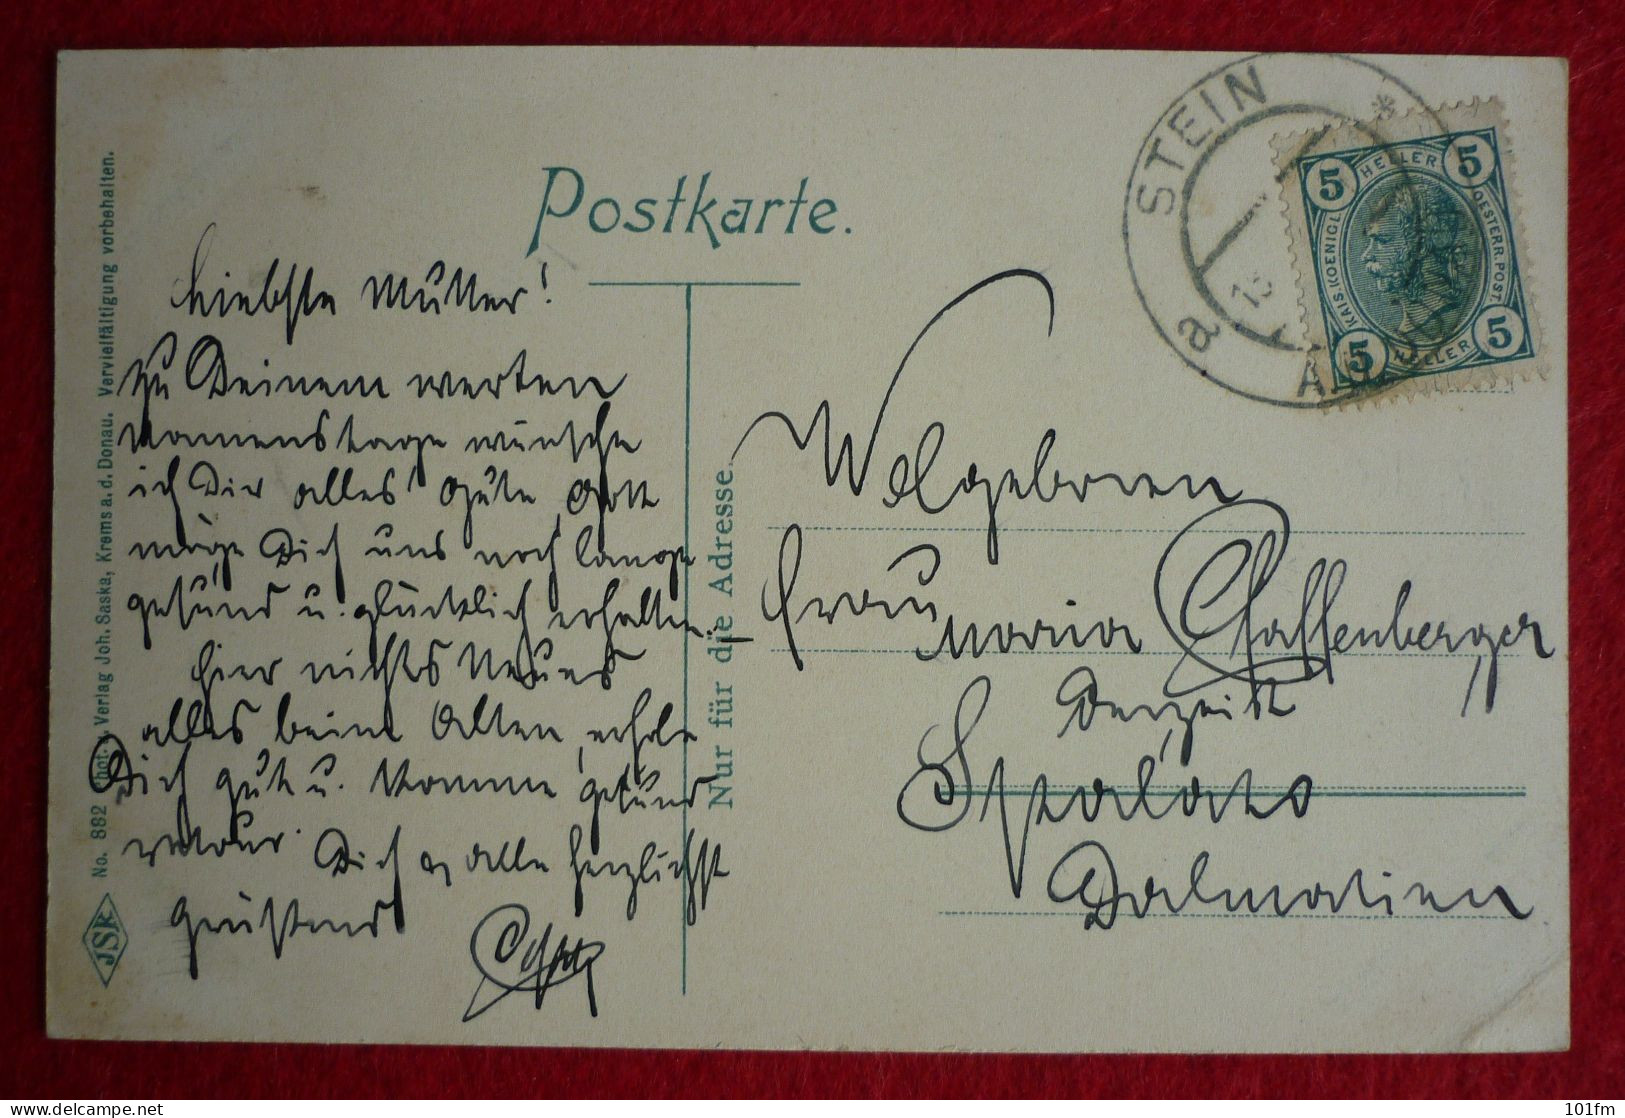 Postkarte.
Liebste Mutter!
Zu Deinem werten
Namenstage wünsche
ich Dir alles Gute, Gott
möge Dich uns noch lange
gesund u. glücklich erhalten.
Hier nichts Neues
alles beim Alten, erhole
Dich gut u. komme gesund
retour. Dich u alle herzlichst
grüßend
Nur für die Adresse.
Wolgeboren
Frau
Maria Schaffenberger
Derzeit
Spalato
Dalmatien
STEIN
*
a
5 HELLER 5
KAIS. KOENIGL. OESTERR. POST.
5 HELLER 5
JSK No. 882 Phot. u. Verlag Joh. Saska, Krems a. d. Donau. Vervielfältigung vorbehalten.
101fm